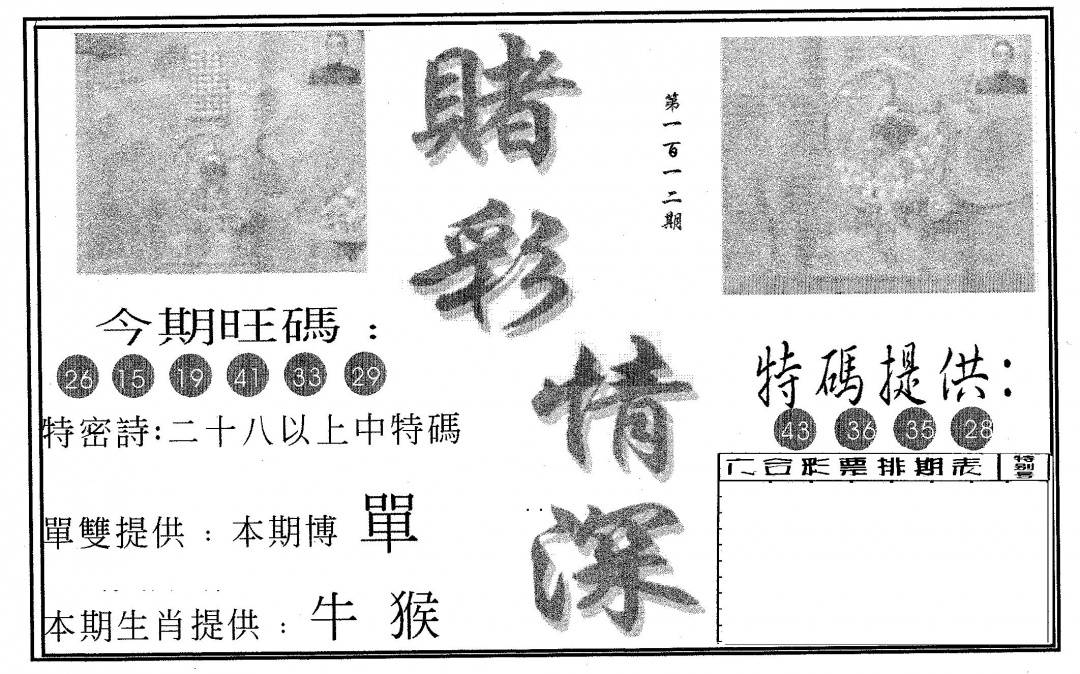 賭彩情深
第一百一二期
今期旺碼：
26 15 19 41 33 29
特密詩:二十八以上中特碼
單雙提供：本期博 單
本期生肖提供：牛 猴
特碼提供：
43 36 35 28
六合彩票排期表 特别号